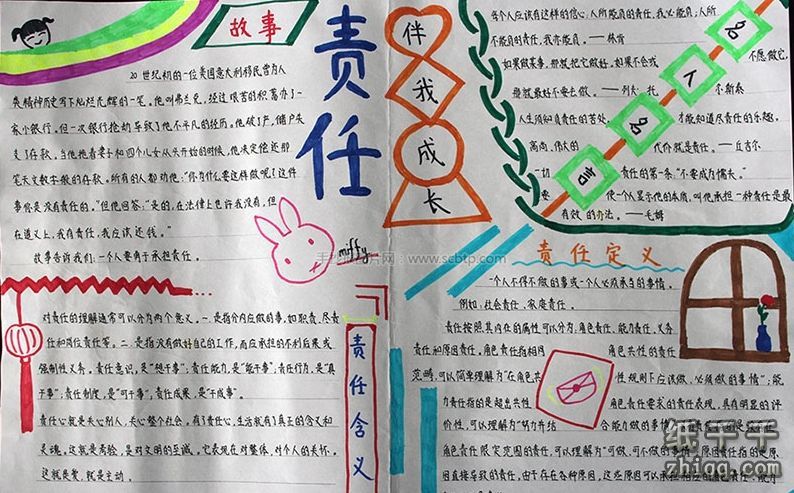 故事
20世纪初的一位美国意大利移民曾为人
类精神历史写下灿烂光辉的一笔。他叫弗兰克,经过艰苦的积蓄办了一
家小银行。但一次银行抢劫导致了他不平凡的经历。他破了产,储户失
去了存款。当他拖着妻子和四个儿女从头开始的时候,他决定偿还那
笔天文数字般的存款。所有的人都劝他:“你为什么要这样做呢?这件
事你是没有责任的。”但他回答:“是的,在法律上也许我没有,但
在道义上,我有责任,我应该还钱。”
故事告诉我们:一个人要勇于承担责任。
miffy
责任
伴我成长
名人名言
每个人应该有这样的信心:人所能负的责任,我必能负;人所
不能负的责任,我亦能负。——林肯
如果做某事,那就把它做好。如果不会或不愿做它,
那就最好不要去做。——列夫·托尔斯泰
人生须知负责任的苦处,才能知道尽责任的乐趣。
高尚、伟大的代价就是责任。——丘吉尔
一切责任的第一条:“不要成为懦夫。”
要使一个人显示他的本质,叫他承担一种责任是最
有效的办法。——毛姆
对责任的理解通常可以分为两个意义。一是指分内应做的事,如职责、尽责
任和岗位责任等。二是指没有做好自己的工作,而应承担的不利后果或
强制性义务。责任意识,是“想干事”;责任能力,是“能干事”;责任行为,是“真
干事”;责任制度,是“可干事”;责任成果,是“干成事”。
责任心就是关心别人,关心整个社会。有了责任心,生活就有了真正的含义和
灵魂。这就是考验,是对文明的至诚。它表现在对整体,对个人的关怀。
这就是爱,就是主动。
责任含义
责任定义
一个人不得不做的事或一个人必须承当的事情。
例如:社会责任、家庭责任。
责任按照其内在的属性可以分为:角色责任、能力责任、义务
责任和原因责任。角色责任指相同角色共性的责任
范畴,可以简单理解为“在角色共性规则下应该做、必须做的事情”;能
力责任指的是超出共性角色责任要求的责任表现,具有明显的评
价性,可以理解为“努力并结合能力做的事情”
角色责任限定范围的责任,可以理解为“可做、可不做的事情”;原因责任指的是原
因直接导致的责任,由于存在各种原因,这些原因可以
手抄报图片网:www.scbtp.com
纸千千
zhiqq.com